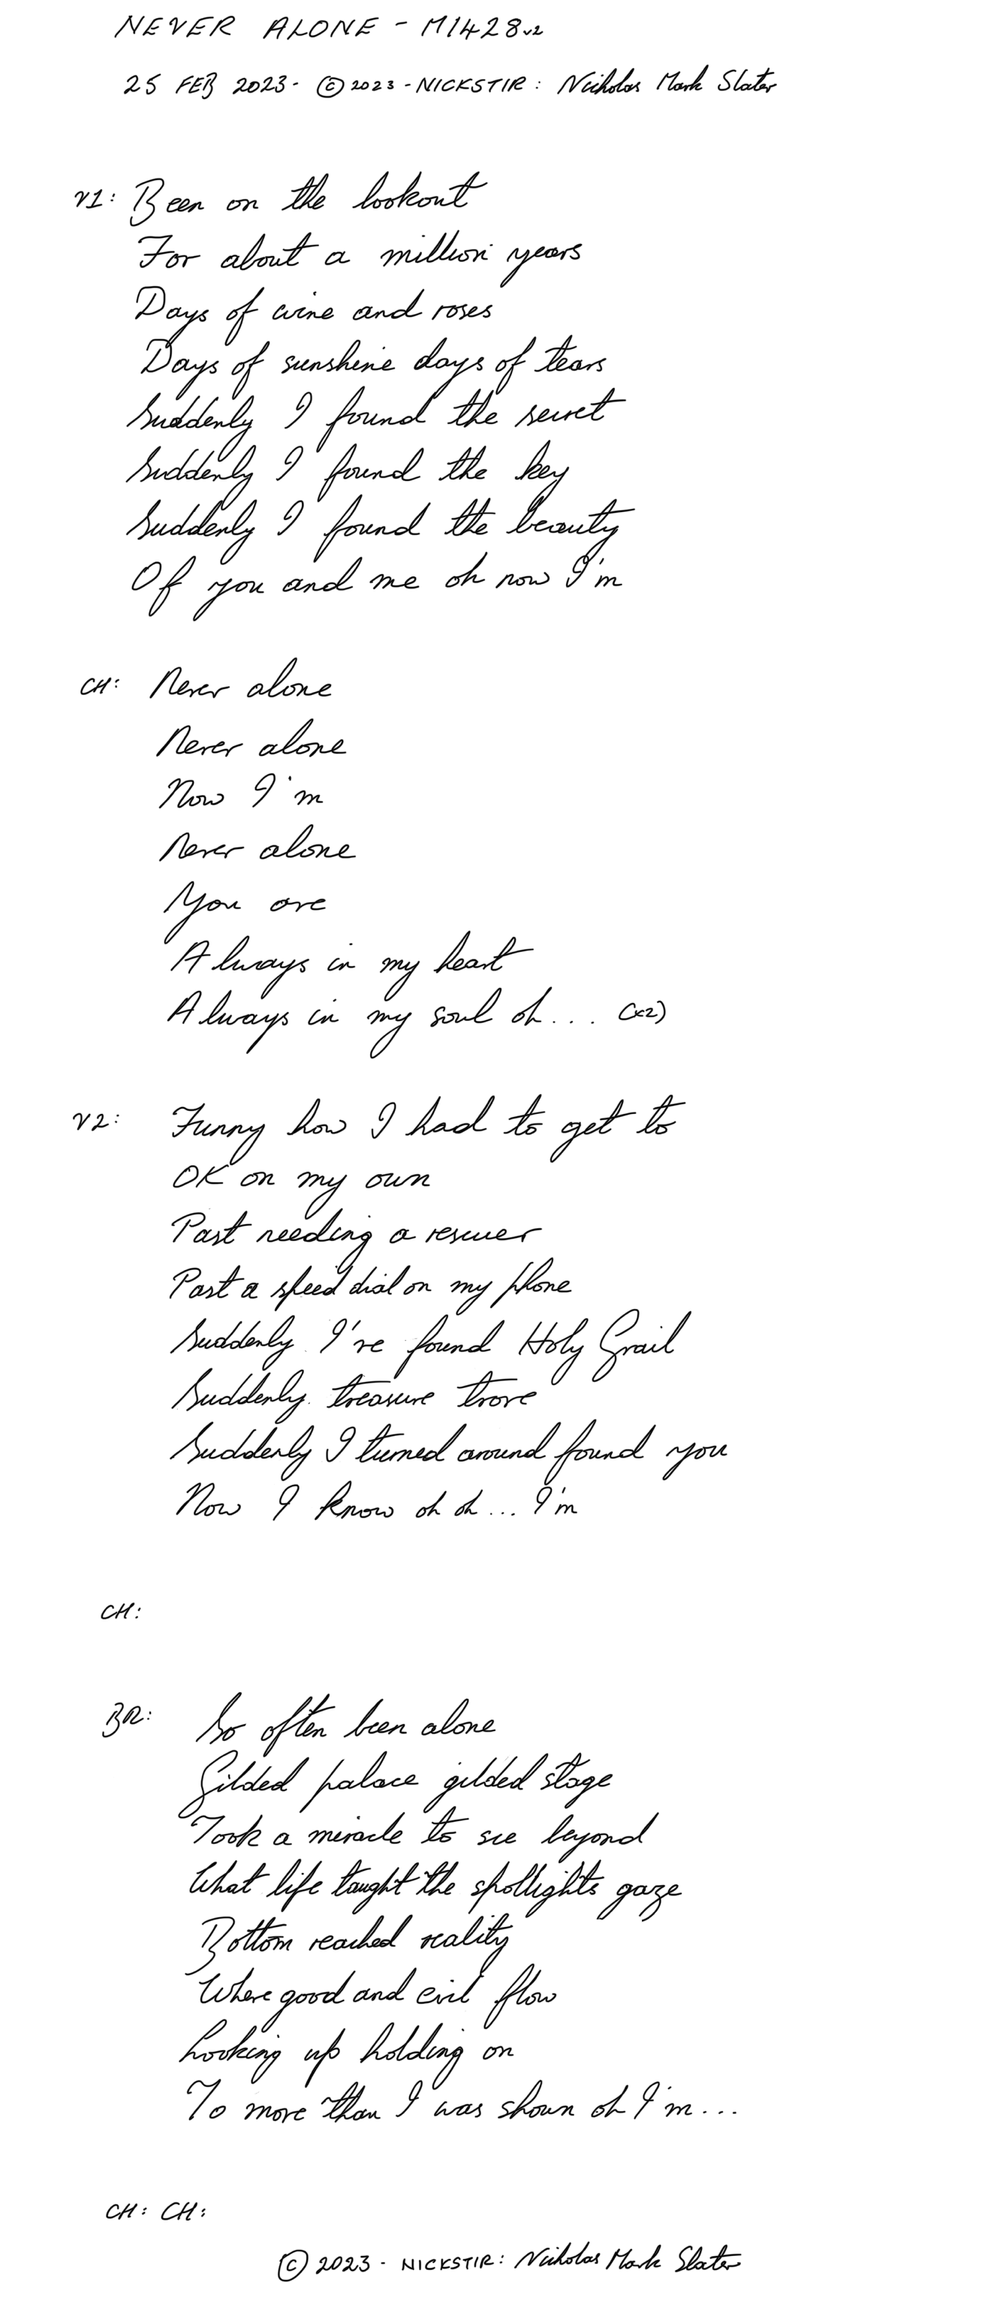 NEVER ALONE - M1428v2
25 FEB 2023 - © 2023 - NICKSTIR: Nicholas Mark Slater
V1: Been on the lookout
For about a million years
Days of wine and roses
Days of sunshine days of tears
Suddenly I found the secret
Suddenly I found the key
Suddenly I found the beauty
Of you and me oh now I'm
CH: Never alone
Never alone
Now I'm
Never alone
You are
Always in my heart
Always in my soul oh... (x2)
V2: Funny how I had to get to
OK on my own
Past needing a rescuer
Past a speed dial on my phone
Suddenly I've found Holy Grail
Suddenly treasure trove
Suddenly I turned around found you
Now I know oh oh... I'm
CH:
BR: So often been alone
Gilded palace gilded stage
Took a miracle to see beyond
What life taught the spotlights gaze
Bottom reached reality
Where good and evil flow
Looking up holding on
To more than I was shown oh I'm...
CH: CH:
© 2023 - NICKSTIR: Nicholas Mark Slater